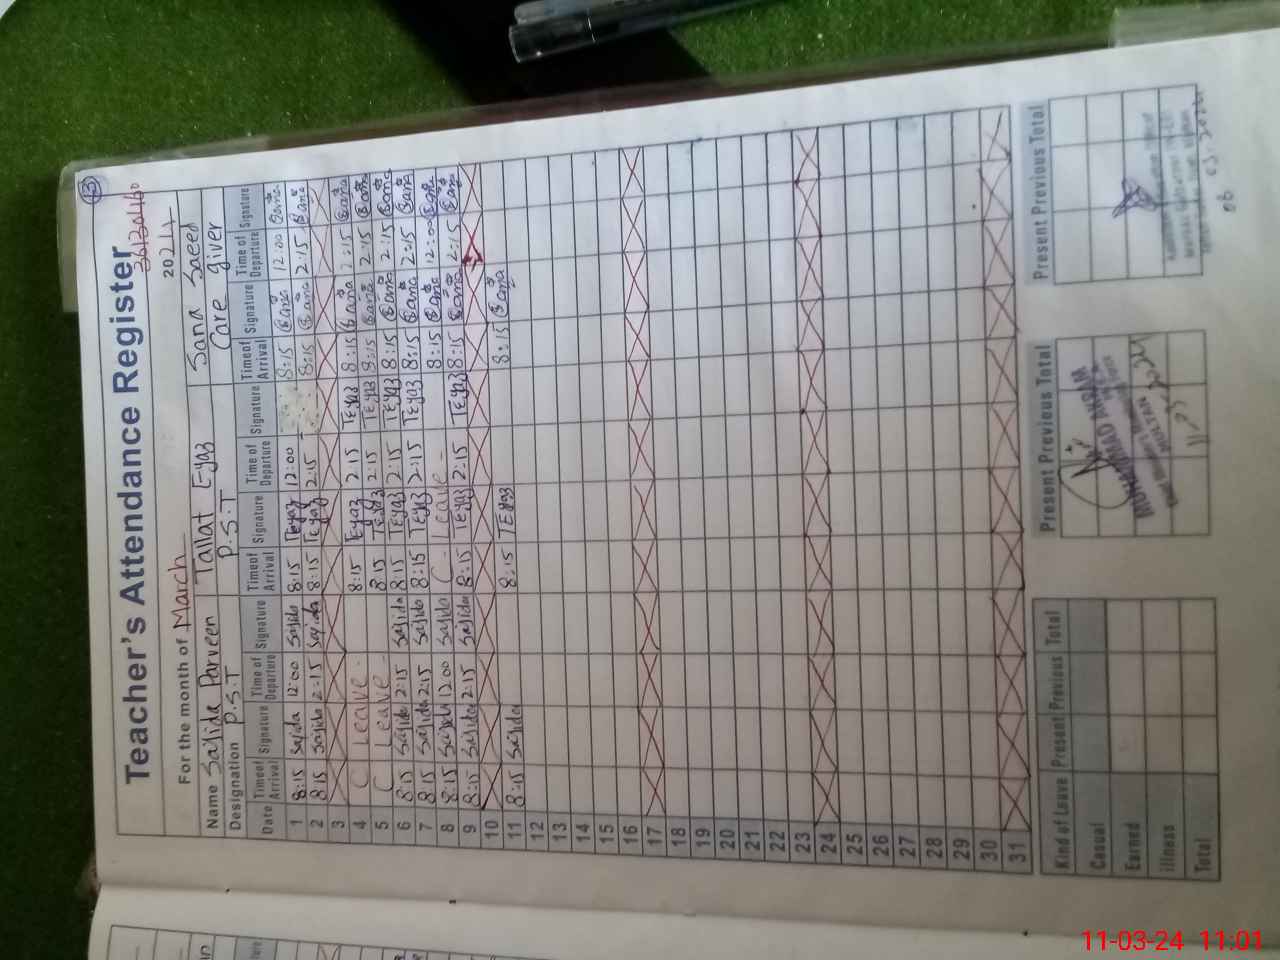 3
Teacher's Attendance Register
36130460
For the month of March 2024
Name Sajida Parveen Tallat Eyaz Sana Saeed
Designation P.S.T P.S.T Care giver
Date Time of Arrival Signature Time of Departure Signature Time of Arrival Signature Time of Departure Signature Time of Arrival Signature Time of Departure Signature
1 8:15 Sajida 12:00 Sajida 8:15 TEyaz 12:00 8:15 Sana 12:00 Sana
2 8:15 Sajida 2:15 Sajida 8:15 TEyaz 2:15 8:15 Sana 2:15 Sana
3
4 C Leave 8:15 Eyaz 2:15 TEyaz 8:15 Sana 2:15 Sana
5 C Leave 8:15 TEyaz 2:15 TEyaz 8:15 Sana 2:15 Sana
6 8:15 Sajida 2:15 Sajida 8:15 TEyaz 2:15 TEyaz 8:15 Sana 2:15 Sana
7 8:15 Sajida 2:15 Sajida 8:15 TEyaz 2:15 TEyaz 8:15 Sana 2:15 Sana
8 8:15 Sajida 12:00 Sajida C. Leave - 8:15 Sana 12:00 Sana
9 8:15 Sajida 2:15 Sajida 8:15 TEyaz 2:15 TEyaz 8:15 Sana 2:15 Sana
10
11 8:15 Sajida 8:15 TEyaz 8:15 Sana
12
13
14
15
16
17
18
19
20
21
22
23
24
25
26
27
28
29
30
31
Kind of Leave Present Previous Total Present Previous Total Present Previous Total
Casual
Earned
illness
Total
MUHAMMAD AHSAN
MULTAN
11-03-2024
11-03-24 11:01